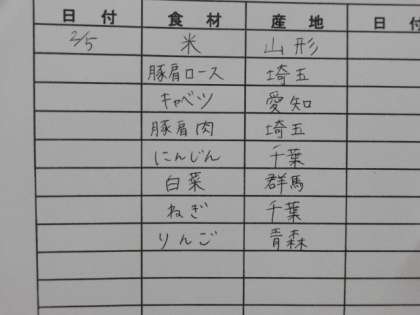 日付 食材 産地 日付
2/5 米 山形
豚肩ロース 埼玉
キャベツ 愛知
豚肩肉 埼玉
にんじん 千葉
白菜 群馬
ねぎ 千葉
りんご 青森